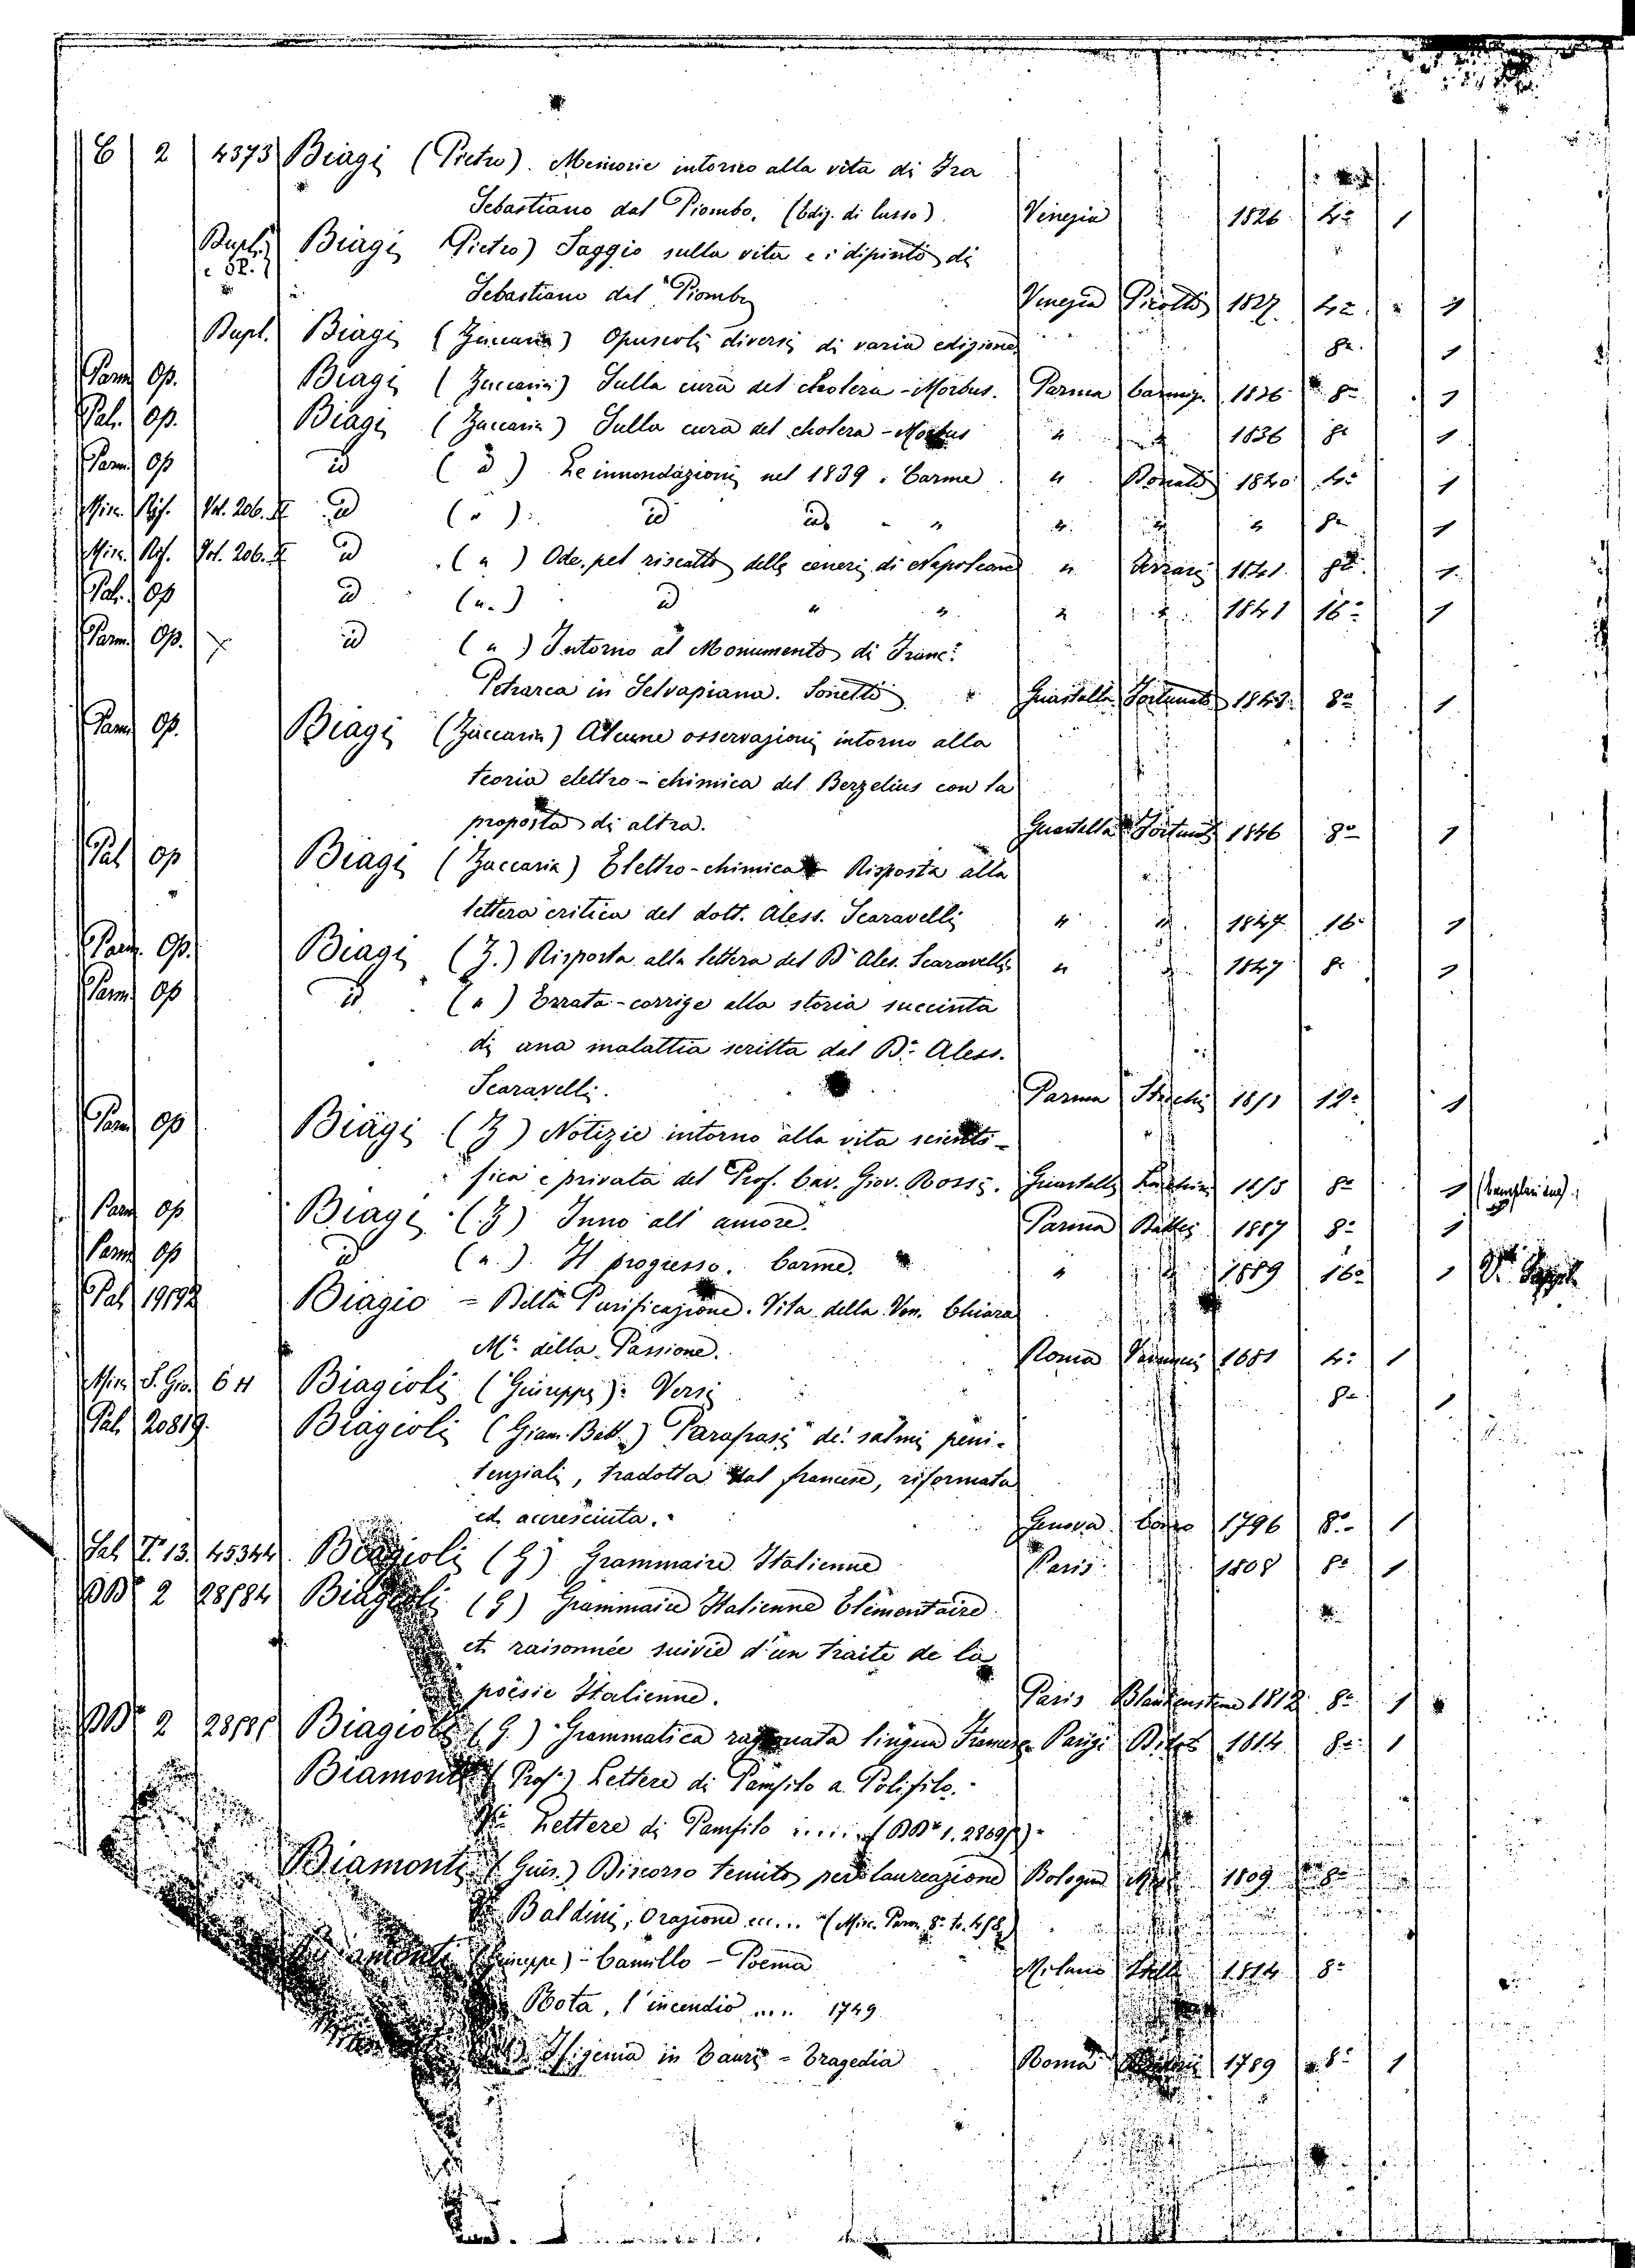 C 2 4373 Biagi (Pietro). Memorie intorno alla vita di Fra
Sebastiano dal Piombo. (Ediz. di lusso). Venezia 1826 4º 1
Dupl. Biagi (Pietro) Saggio sulla vita e i dipinti di
Sebastiano dal Piombo Venezia Picotti 1827 4º 1
Dupl. Biagi (Zaccaria) Opuscoli diversi di varia edizione 8º 1
Parm. Op. Biagi (Zaccaria) Sulla cura del cholera-Morbus. Parma Carmig. 1836 8º 1
Pal. Op. Biagi (Zaccaria) Sulla cura del cholera-Morbus " " 1836 8º 1
Parm. Op id (id) Le innondazioni nel 1839. Carme. " Donati 1840 4º 1
Misc. Rif. Vol. 206. II id ("). id id " " " " " 8º 1
Misc. Rif. Vol. 206. II id (") Ode, pel riscatto delle ceneri di Napoleone " Ferrari 1841 8º 1
Pal. Op id (") id " " " " 1841 16º 1
Parm. Op. id (") Intorno al Monumento di Franc.º
Petrarca in Selvapiana. Sonetti Guastalla Fortunati 1843 8º 1
Parm. Op. Biagi (Zaccaria) Alcune osservazioni intorno alla
teoria elettro-chimica del Berzelius con la
proposta di altra. Guastalla Fortunati 1846 8º 1
Pal. Op Biagi (Zaccaria) Elettro-chimica Risposta alla
lettera critica del dott. Aless. Scaravelli " " 1847 16º 1
Parm. Op. Biagi (Z.) Risposta alla lettera del Dr Ales. Scaravelli " " 1847 8º 1
Parm. Op id. (") Errata-corrige alla storia succinta
di una malattia scritta dal Dr. Aless.
Scaravelli. Parma 12º 1
Parm. Op Biagi (Z) Notizie intorno alla vita scienti-
fica e privata del Prof. Cav. Giov. Rossi. Guastalla 1855 8º 1
Parm. Op Biagi (Z) Inno all' amore. Parma Battei 1887 8º 1
Parm. Op id ("). Il progresso. Carme. " " 1889 16º 1
Pal. 19192 Biagio = Della Purificazione. Vita della Ven. Chiara
Mª della Passione. Roma 1681 4º 1
Misc. S. Gio. 64 Biagioli (Giuseppe). Versi 8º 1
Pal. 20819. Biagioli (Giam. Batt.) Parafrasi de' salmi peni-
tenziali, tradotta dal francese, riformata
ed accresciuta. Genova 1796 8º 1
Sal. T. 13. 45344 Biagioli (G) Grammaire Italienne Paris 1808 8º 1
DD* 2 28584 Biagioli (G) Grammaire Italienne Elèmentaire
et raisonnée suivie d'un traite de la
poësie Italienne. Paris 1812 8º 1
DD* 2 28585 Biagioli (G.) Grammatica ragionata lingua Francese Parigi Didot 1814 8º 1
Biamonti (Prof.) Lettere di Pamfilo a Polifilo.
Vi Lettere di Pamfilo ..... (DD* 1. 28695).
Biamonti (Gius.) Discorso tenuto per laureazione Bologna 1809 8º
Baldini, Orazione ec... (Misc. Parm. 8º to. 458)
Biamonti (Giuseppe) - Camillo - Poema Milano Stella 1814 8º
Bota, l'incendio .... 1749
Ifigenia in Tauri = Tragedia Roma 1789 8º 1